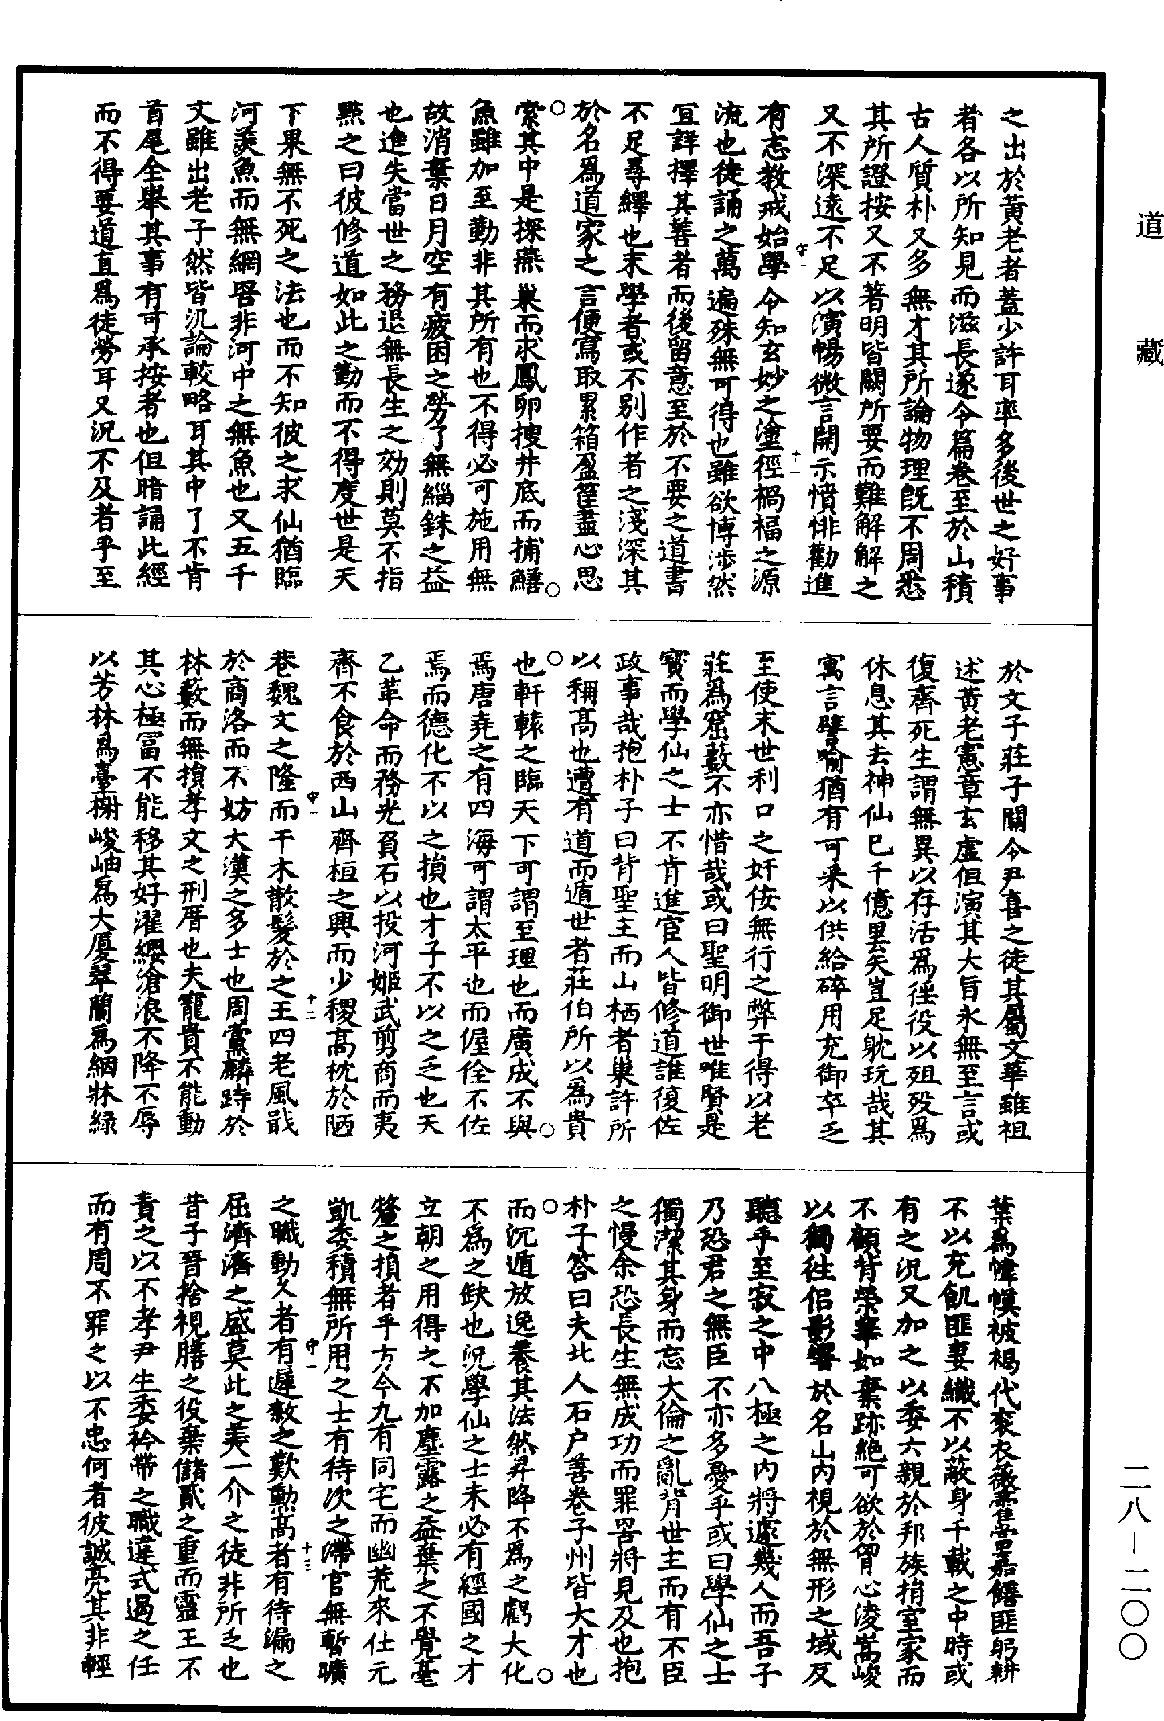 道藏
之出於黃老者蓋少許耳率多後世之好事
者各以所知見而滋長遂令篇卷至於山積
古人質朴又多無才其所論物理旣不周悉
其所證按又不著明皆闕所要而難解解之
又不深遠不足以演暢微言開示憤悱勸進
守一
十一
有志敎戒始學令知玄妙之塗徑禍福之源
流也徒誦之萬遍殊無可得也雖欲博涉然
宜詳擇其善者而後留意至於不要之道書
不足尋繹也末學者或不別作者之淺深其
於名爲道家之言便寫取累箱盈筐盡心思
索其中是探鷰巢而求鳳卵搜井底而捕鱔
魚雖加至勤非其所有也不得必可施用無
故消棄日月空有疲困之勞了無緇銖之益
也進失當世之務退無長生之効則莫不指
點之曰彼修道如此之勤而不得度世是天
下果無不死之法也而不知彼之求仙猶臨
河羨魚而無網罟非河中之無魚也又五千
文雖出老子然皆汎論較略耳其中了不肯
首尾全舉其事有可承按者也但暗誦此經
而不得要道直爲徒勞耳又況不及者乎至
於文子莊子關令尹喜之徒其屬文華雖祖
述黃老憲章玄虛但演其大旨永無至言或
復齊死生謂無異以存活爲徭役以殂歿爲
休息其去神仙已千億里矣豈足躭玩哉其
寓言譬喻猶有可采以供給碎用充御卒乏
至使末世利口之奸佞無行之弊子得以老
莊爲窟藪不亦惜哉或曰聖明御世唯賢是
寳而學仙之士不肯進宦人皆修道誰復佐
政事哉抱朴子曰背聖主而山栖者巢許所
以稱高也遭有道而遁世者莊伯所以爲貴
也軒轅之臨天下可謂至理也而廣成不與
焉唐堯之有四海可謂太平也而偓佺不佐
焉而德化不以之損也才子不以之乏也天
乙革命而務光負石以投河姬武剪商而夷
齊不食於西山齊桓之興而少稷高枕於陋
巷魏文之隆而干木散髮於之王四老風戢
守一
十二
於商洛而不妨大漢之多士也周黨麟跱於
林藪而無損孝文之刑厝也夫寵貴不能動
其心極富不能移其好濯纓滄浪不降不辱
以芳林爲臺榭峻岫爲大厦翠蘭爲絪牀綠
葉爲幃幙被褐代衮衣薇藿當嘉饍匪躬耕
不以充飢匪妻織不以蔽身千載之中時或
有之況又加之以委六親於邦族捐室家而
不顧背榮華如棄跡絕可欲於胷心淩嵩峻
以獨往侶影響於名山內視於無形之域反
聽乎至寂之中八極之內將遽幾人而吾子
乃恐君之無臣不亦多憂乎或曰學仙之士
獨潔其身而忘大倫之亂背世主而有不臣
之慢余恐長生無成功而罪罟將見及也抱
朴子荅曰夫北人石户善卷子州皆大才也
而沉遁放逸養其法然昇降不爲之虧大化
不爲之缺也況學仙之士未必有經國之才
立朝之用得之不加塵露之益棄之不覺毫
釐之損者乎方今九有同宅而幽荒來仕元
凱委積無所用之士有待次之滯官無暫曠
之職動久者有遲敘之歎勲高者有待漏之
守一
十三
屈濟濟之盛莫此之美一介之徒非所乏也
昔子晉捨視膳之役棄儲貳之重而靈王不
責之以不孝尹生委衿帶之職違式遏之任
而有周不罪之以不忠何者彼誠亮其非輕
二八—二〇〇